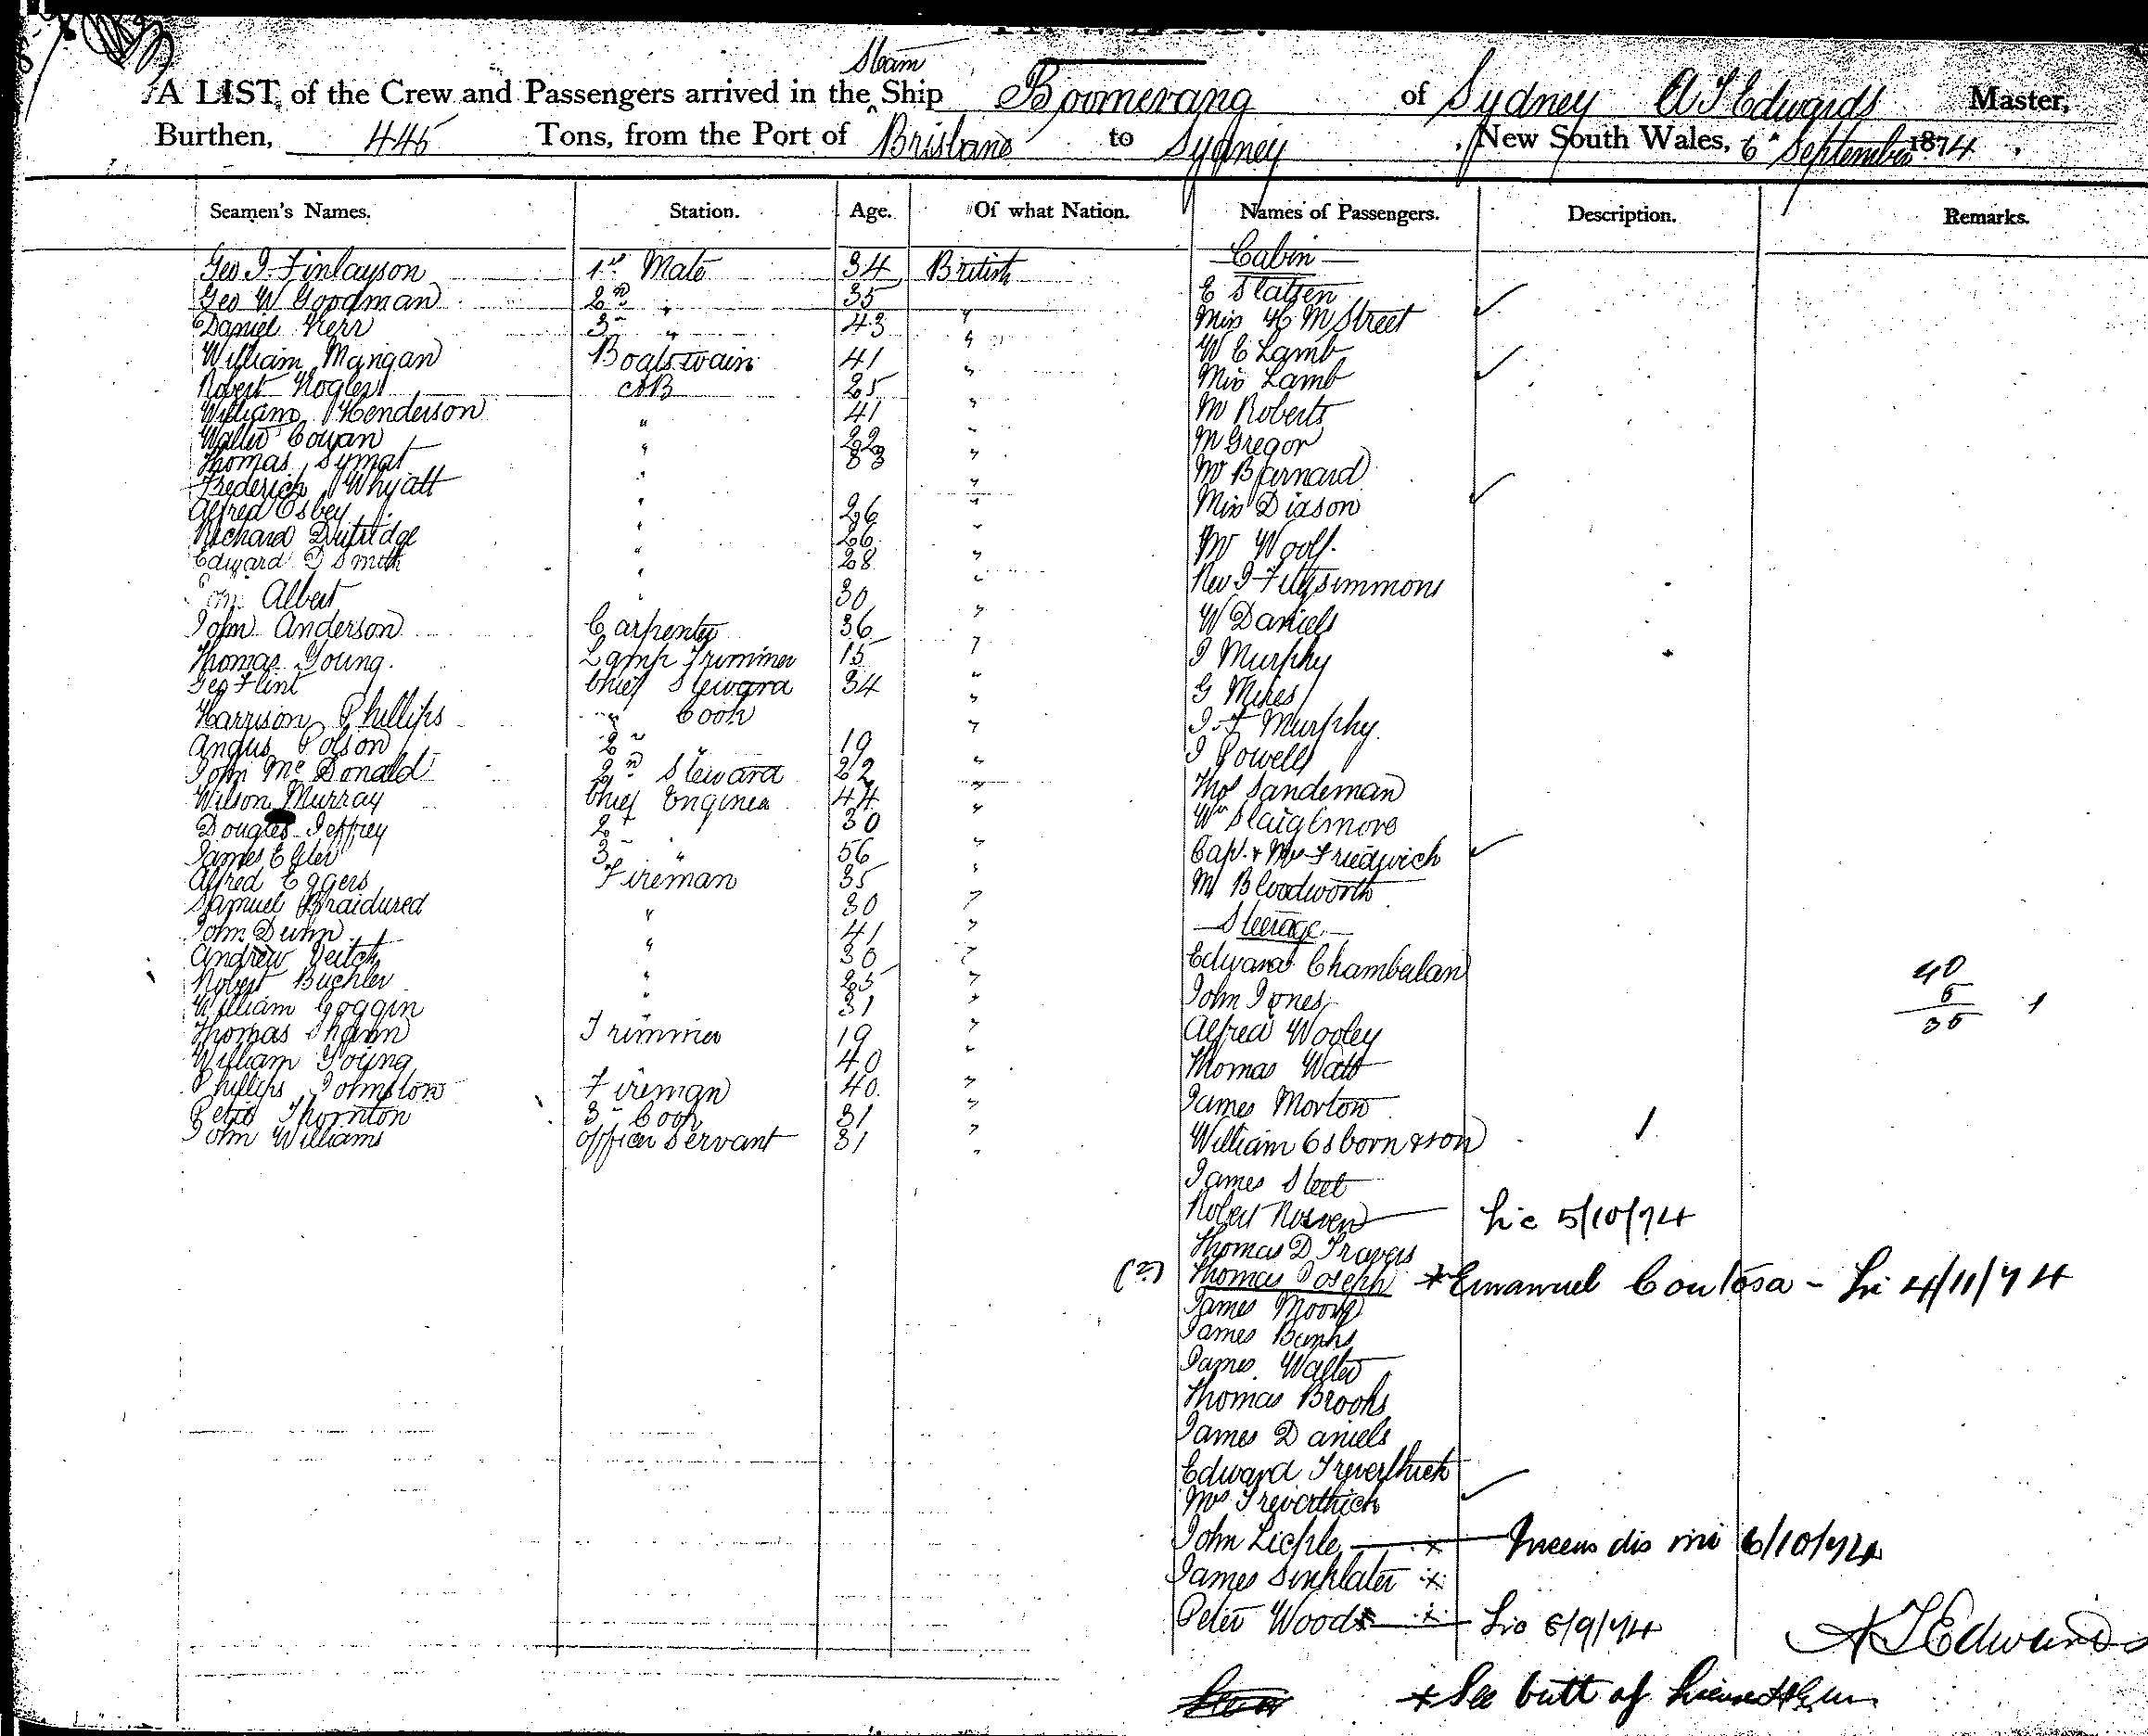 Steam
A LIST of the Crew and Passengers arrived in the Ship Boomerang of Sydney A T Edwards Master,
Burthen, 445 Tons, from the Port of Brisbane to Sydney, New South Wales, 6" September 1874
Seamen's Names. Station. Age. Of what Nation. Names of Passengers. Description. Remarks.
Geo J. Finlayson 1st Mate 34 British
Geo W Goodman 2nd " 35 "
Daniel Kerr 3 " 43 "
William Mangan Boatswain 41 "
Robert AB 25 "
William Henderson " 41 "
Walter Cowan " 22 "
Thomas " 33 "
Frederick Whyatt " "
Alfred Esbey " 26 "
Richard " 26 "
Edward D Smith " 28 "
Albert " 30 "
John Anderson Carpenter 36 "
Thomas Young Lamp Trimmer 15 "
Geo Flint Chief Steward 34 "
Harrison Phillips " Cook "
Angus Polson 2nd " 19 "
John McDonald 2nd Steward 22 "
Wilson Murray Chief Engineer 44 "
Douglas Jeffrey 2 " 30 "
James 3 " 56 "
Alfred Eggers Fireman 35 "
Samuel " 30 "
John Dunn " 41 "
Andrew Veitch " 30 "
Robert Buchler " 25 "
William Goggin " 31 "
Thomas Trimmer 19 "
William Young 40 "
Phillips Johnston Fireman 40 "
Peter Thornton 3 Cook 31 "
John Williams Officer Servant 31 "
Cabin
E
Miss H M Street
W E Lamb
Miss Lamb
Mr Roberts
McGregor
Mr Barnard
Miss
Mr Woolf
Rev J Fitzsimmons
W Daniels
J Murphy
G
J. F Murphy.
J Powell
Thos Sandeman
Wm
Capt. & Mrs
Mr Bloodworth
Steerage
Edward Chamberlan
John Jones
Alfred Wooley
Thomas Watt
James Morton
William Osborn & son
James
Robert Lic 5/10/74
Thomas D Travers
(?) Thomas Joseph * Emanuel Coutosa - Lic 4/11/74
James Moore
James Banks
James Walter
Thomas Brooks
James Daniels
Edward Treverthick
Mrs Treverthick
John x 6/10/74
James Sinklater x
Peter Wood x Lic 8/9/74
40
5
35
1
A T Edwards
* See butt of